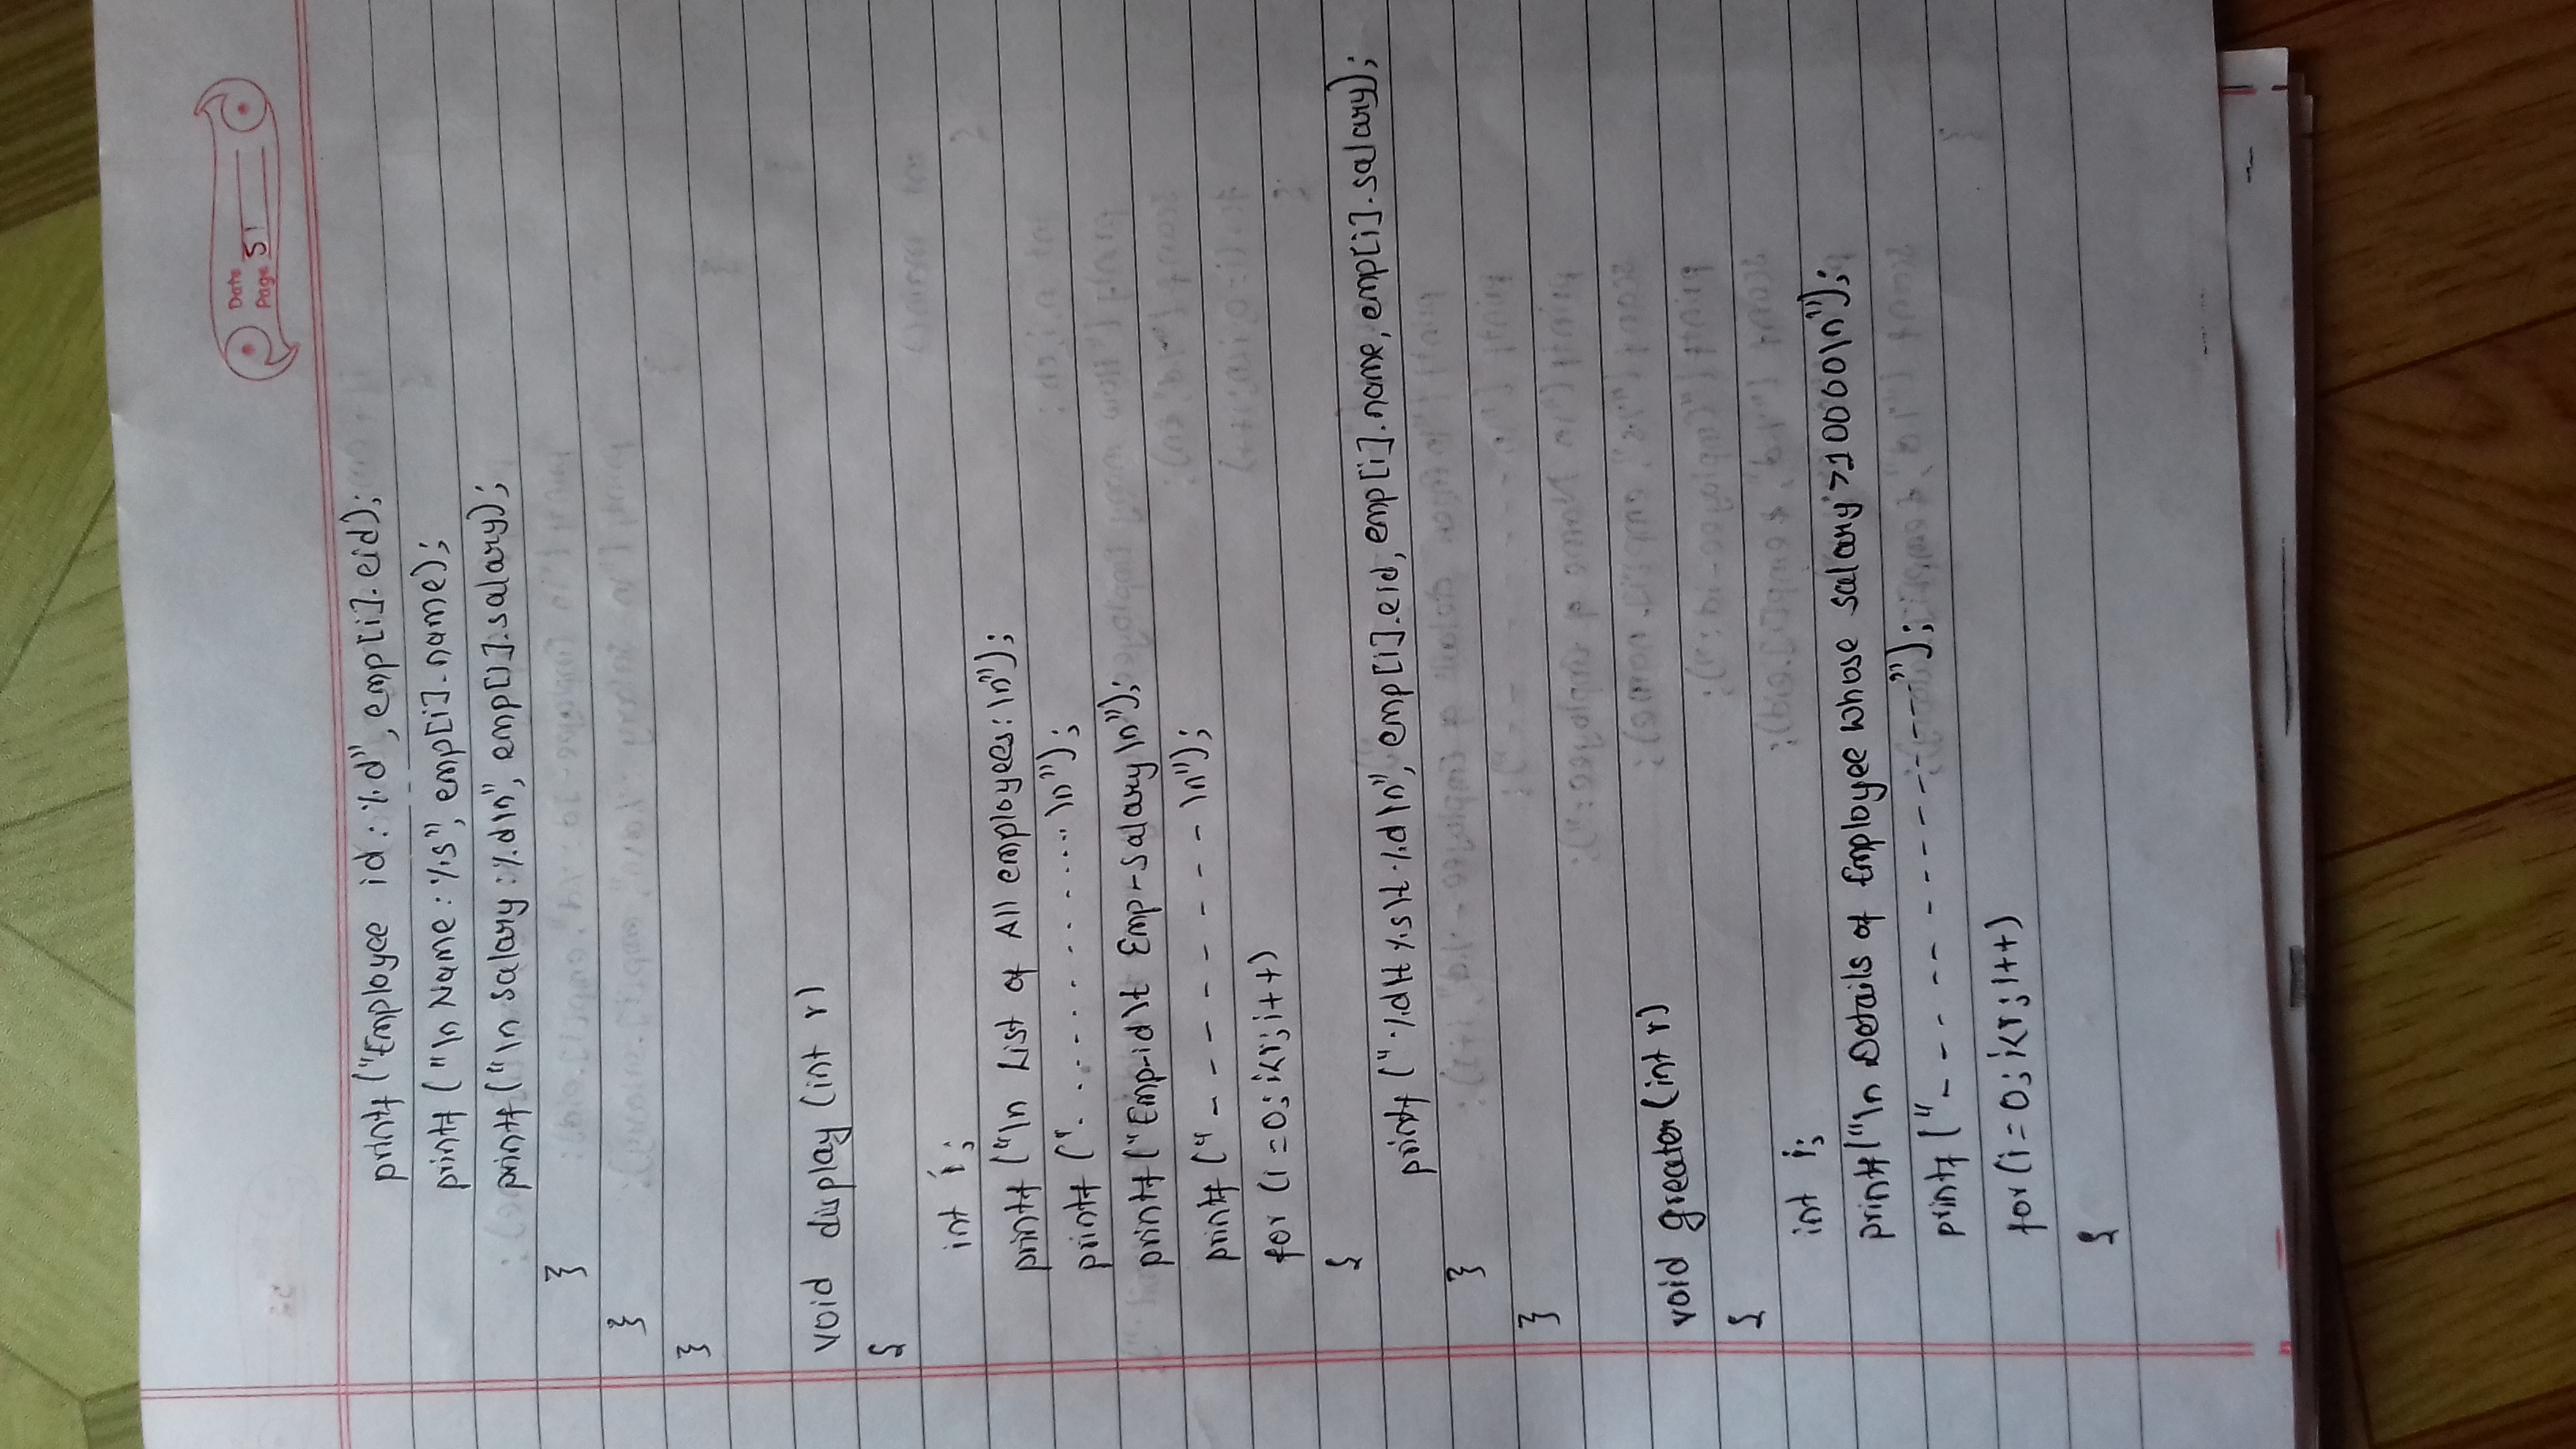 Date
Page 51
printf ("Employee id : %d", emp[i].eid);
printf ("\n Name : %s", emp[i].name);
printf ("\n salary : %d\n", emp[i].salary);
}
}
}
void display (int r)
{
int i;
printf ("\n List of All employees: \n");
printf ("- - - - - - - - - - - - \n");
printf ("Emp-id \t Emp-salary \n");
printf ("- - - - - - - - \n");
for (i=0; i<r; i++)
{
printf (" %d\t %s\t %d\n", emp[i].eid, emp[i].name, emp[i].salary);
}
}
void greater (int r)
{
int i;
printf("\n Details of Employee whose salary >10000\n");
printf ("- - - - - - - - - - - - -");
for (i=0; i<r; i++)
{